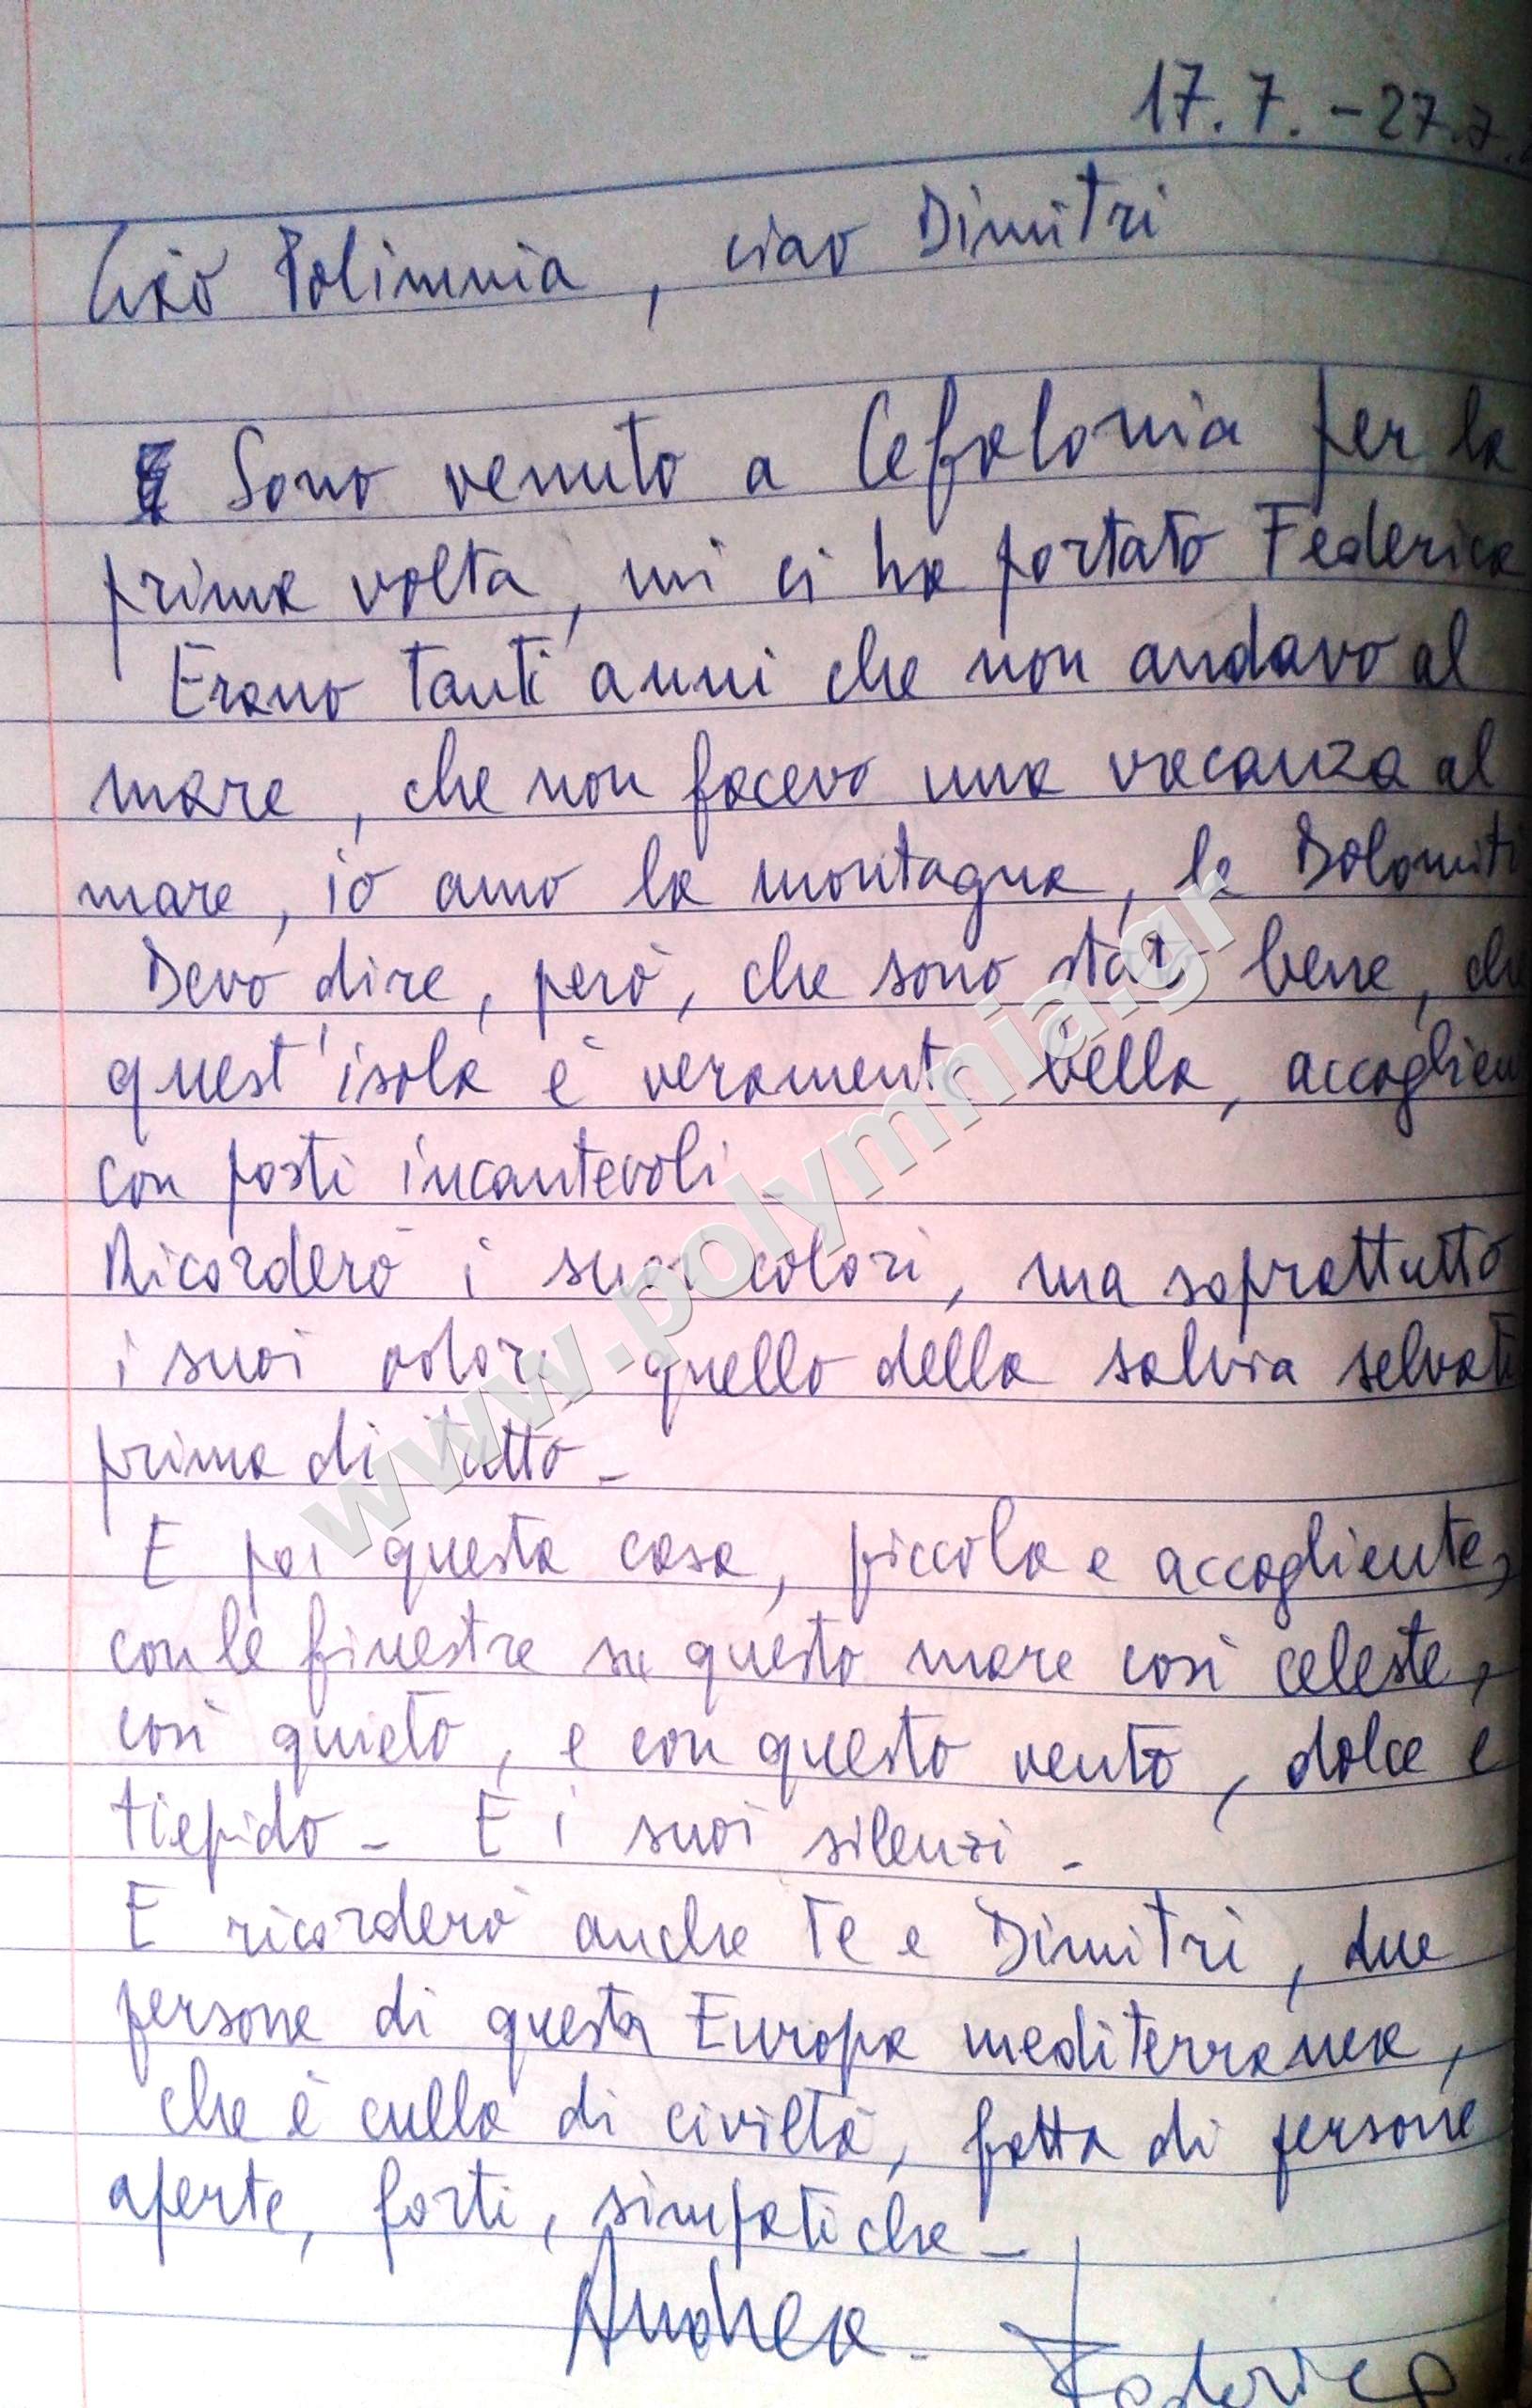 17.7. - 27.7.
Ciao Polimnia, ciao Dimitri
Sono venuto a Cefalonia per la
prima volta, mi ci ha portato Federica
Erano tanti anni che non andavo al
mare, che non facevo una vacanza al
mare, io amo la montagna, le Dolomiti
Devo dire, però, che sono stato bene, che
quest'isola è veramente bella, accoglien
con posti incantevoli.
Ricorderò i suoi colori, ma soprattutto
i suoi odori quello della salvia selvati
prima di tutto -
E poi questa casa, piccola e accogliente,
con le finestre su questo mare così celeste,
così quieto, e con questo vento, dolce e
tiepido - E i suoi silenzi -
E ricorderò anche te e Dimitri, due
persone di questa Europa mediterranea,
che è culla di civiltà, fatta di persone
aperte, forti, simpatiche -
Andrea. Federica
www.polymnia.gr